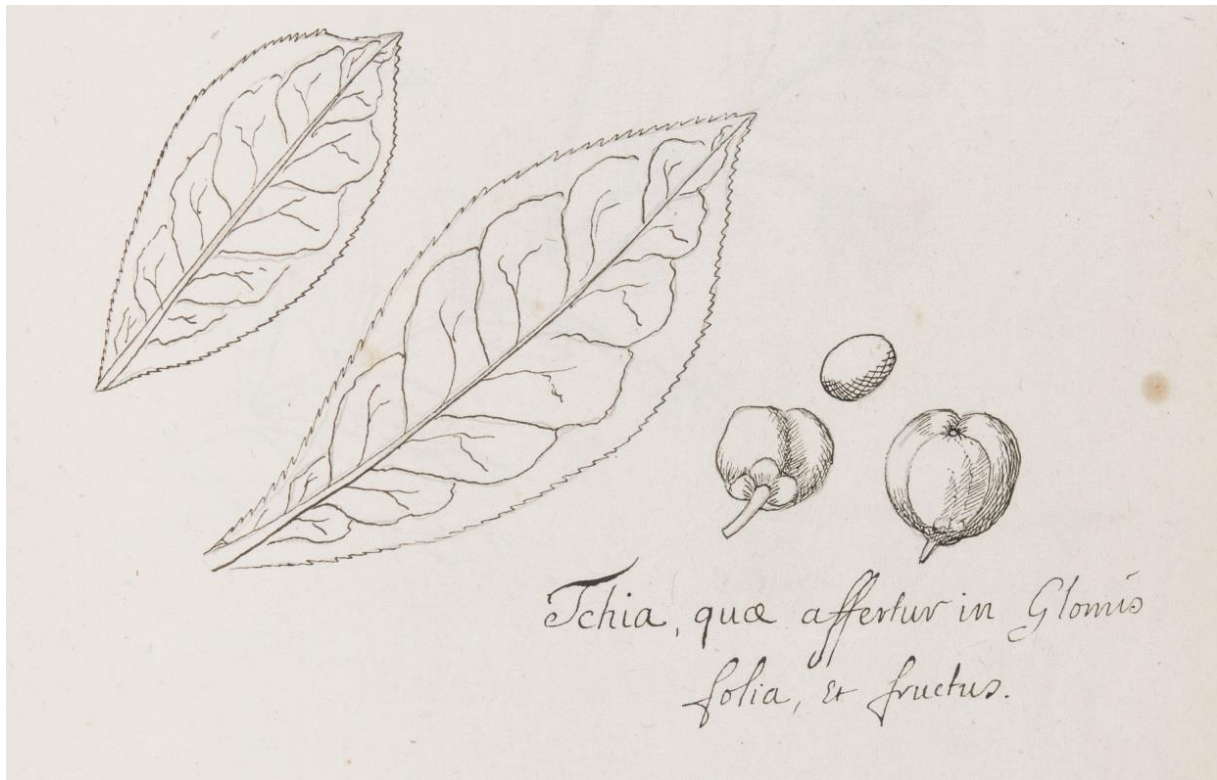 Tchia, quæ affertur in Glomis
folia, et fructus.